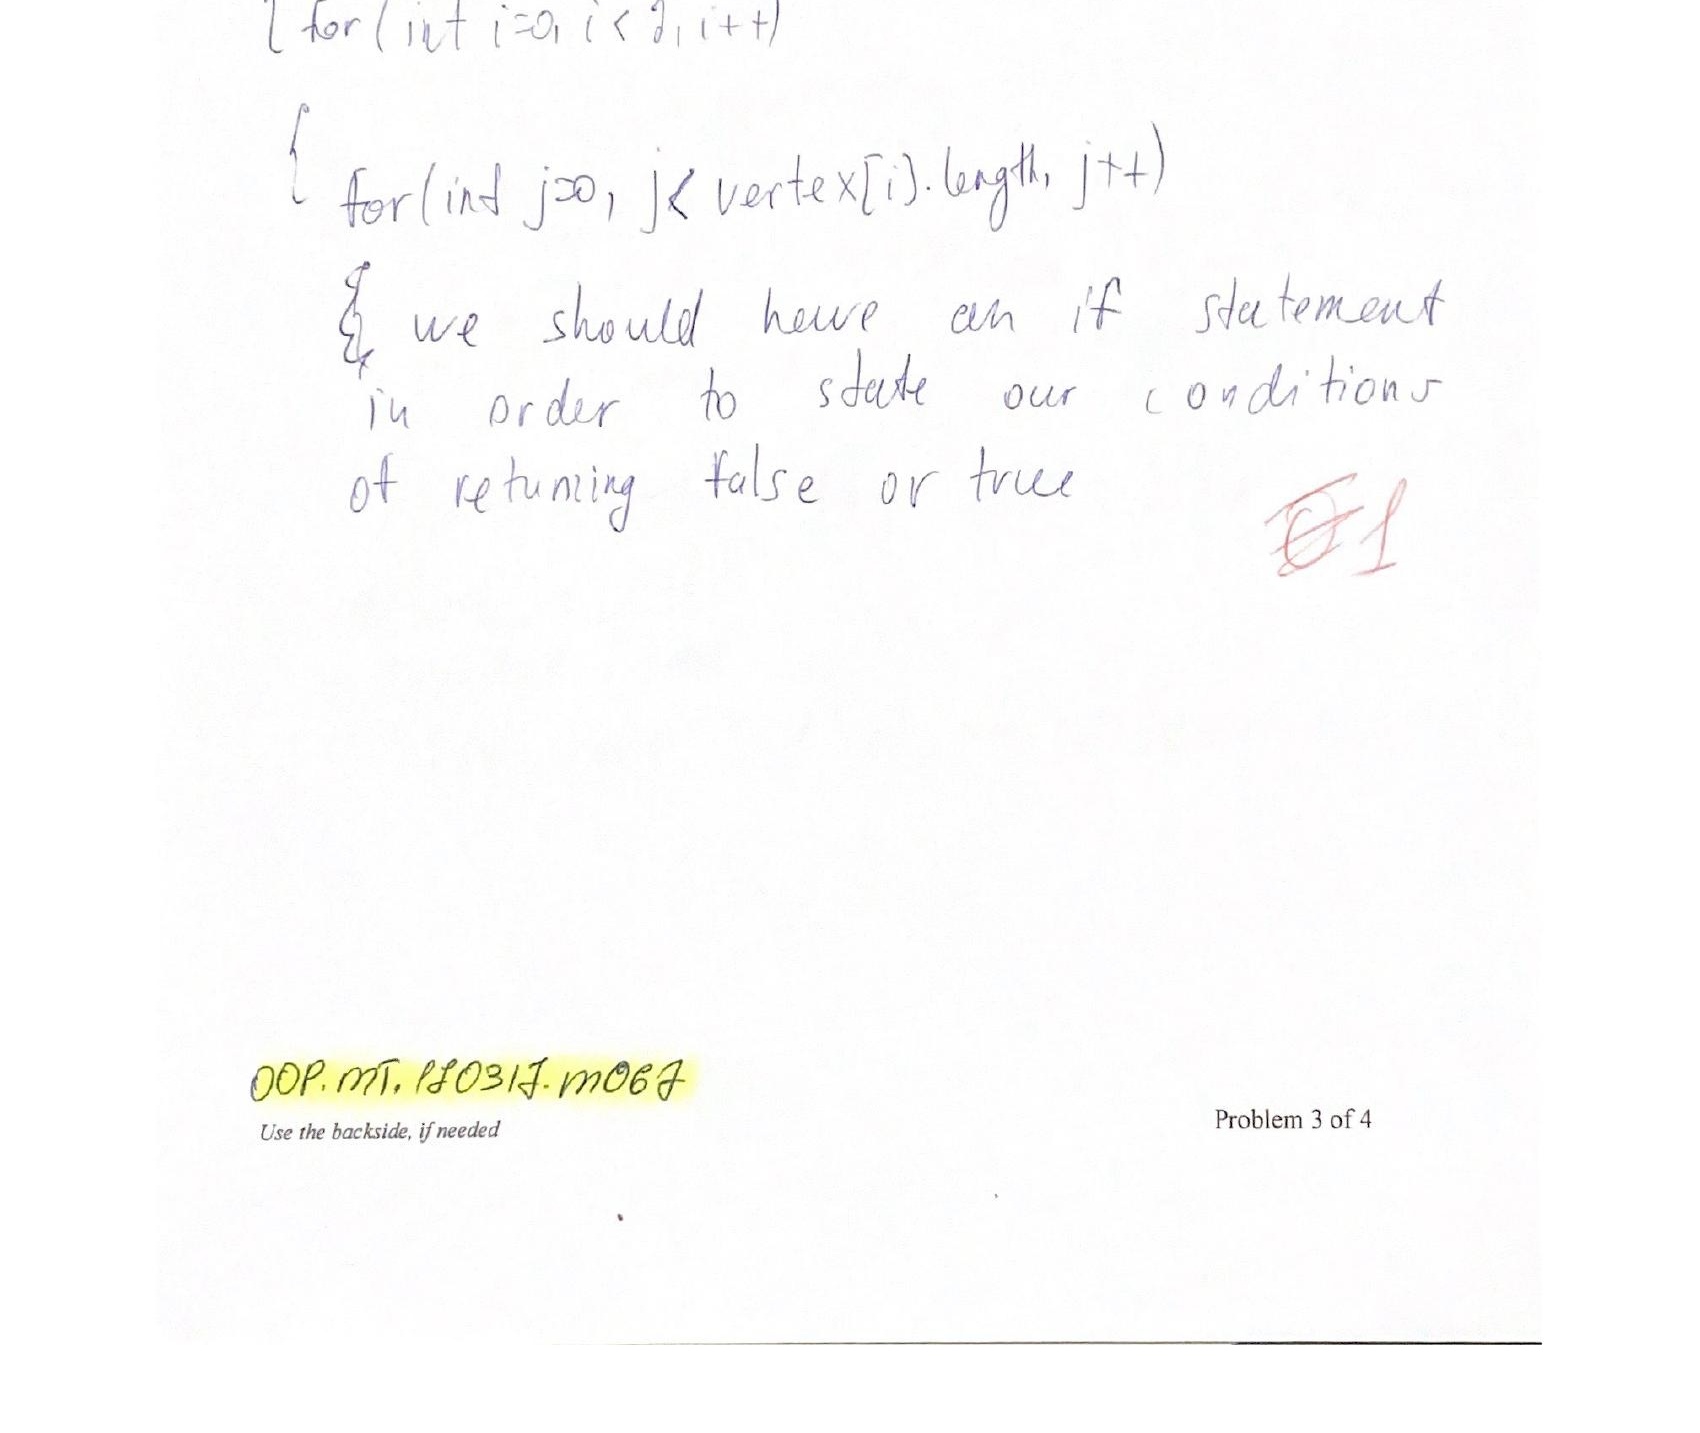 { for ( int i=0, i < 2, i++)
{
for ( int j=0, j < vertex[i].length, j++)
{ we should have an if statement
in order to state our conditions
of returning false or true
1
OOP.MT.180317.M067
Use the backside, if needed
Problem 3 of 4